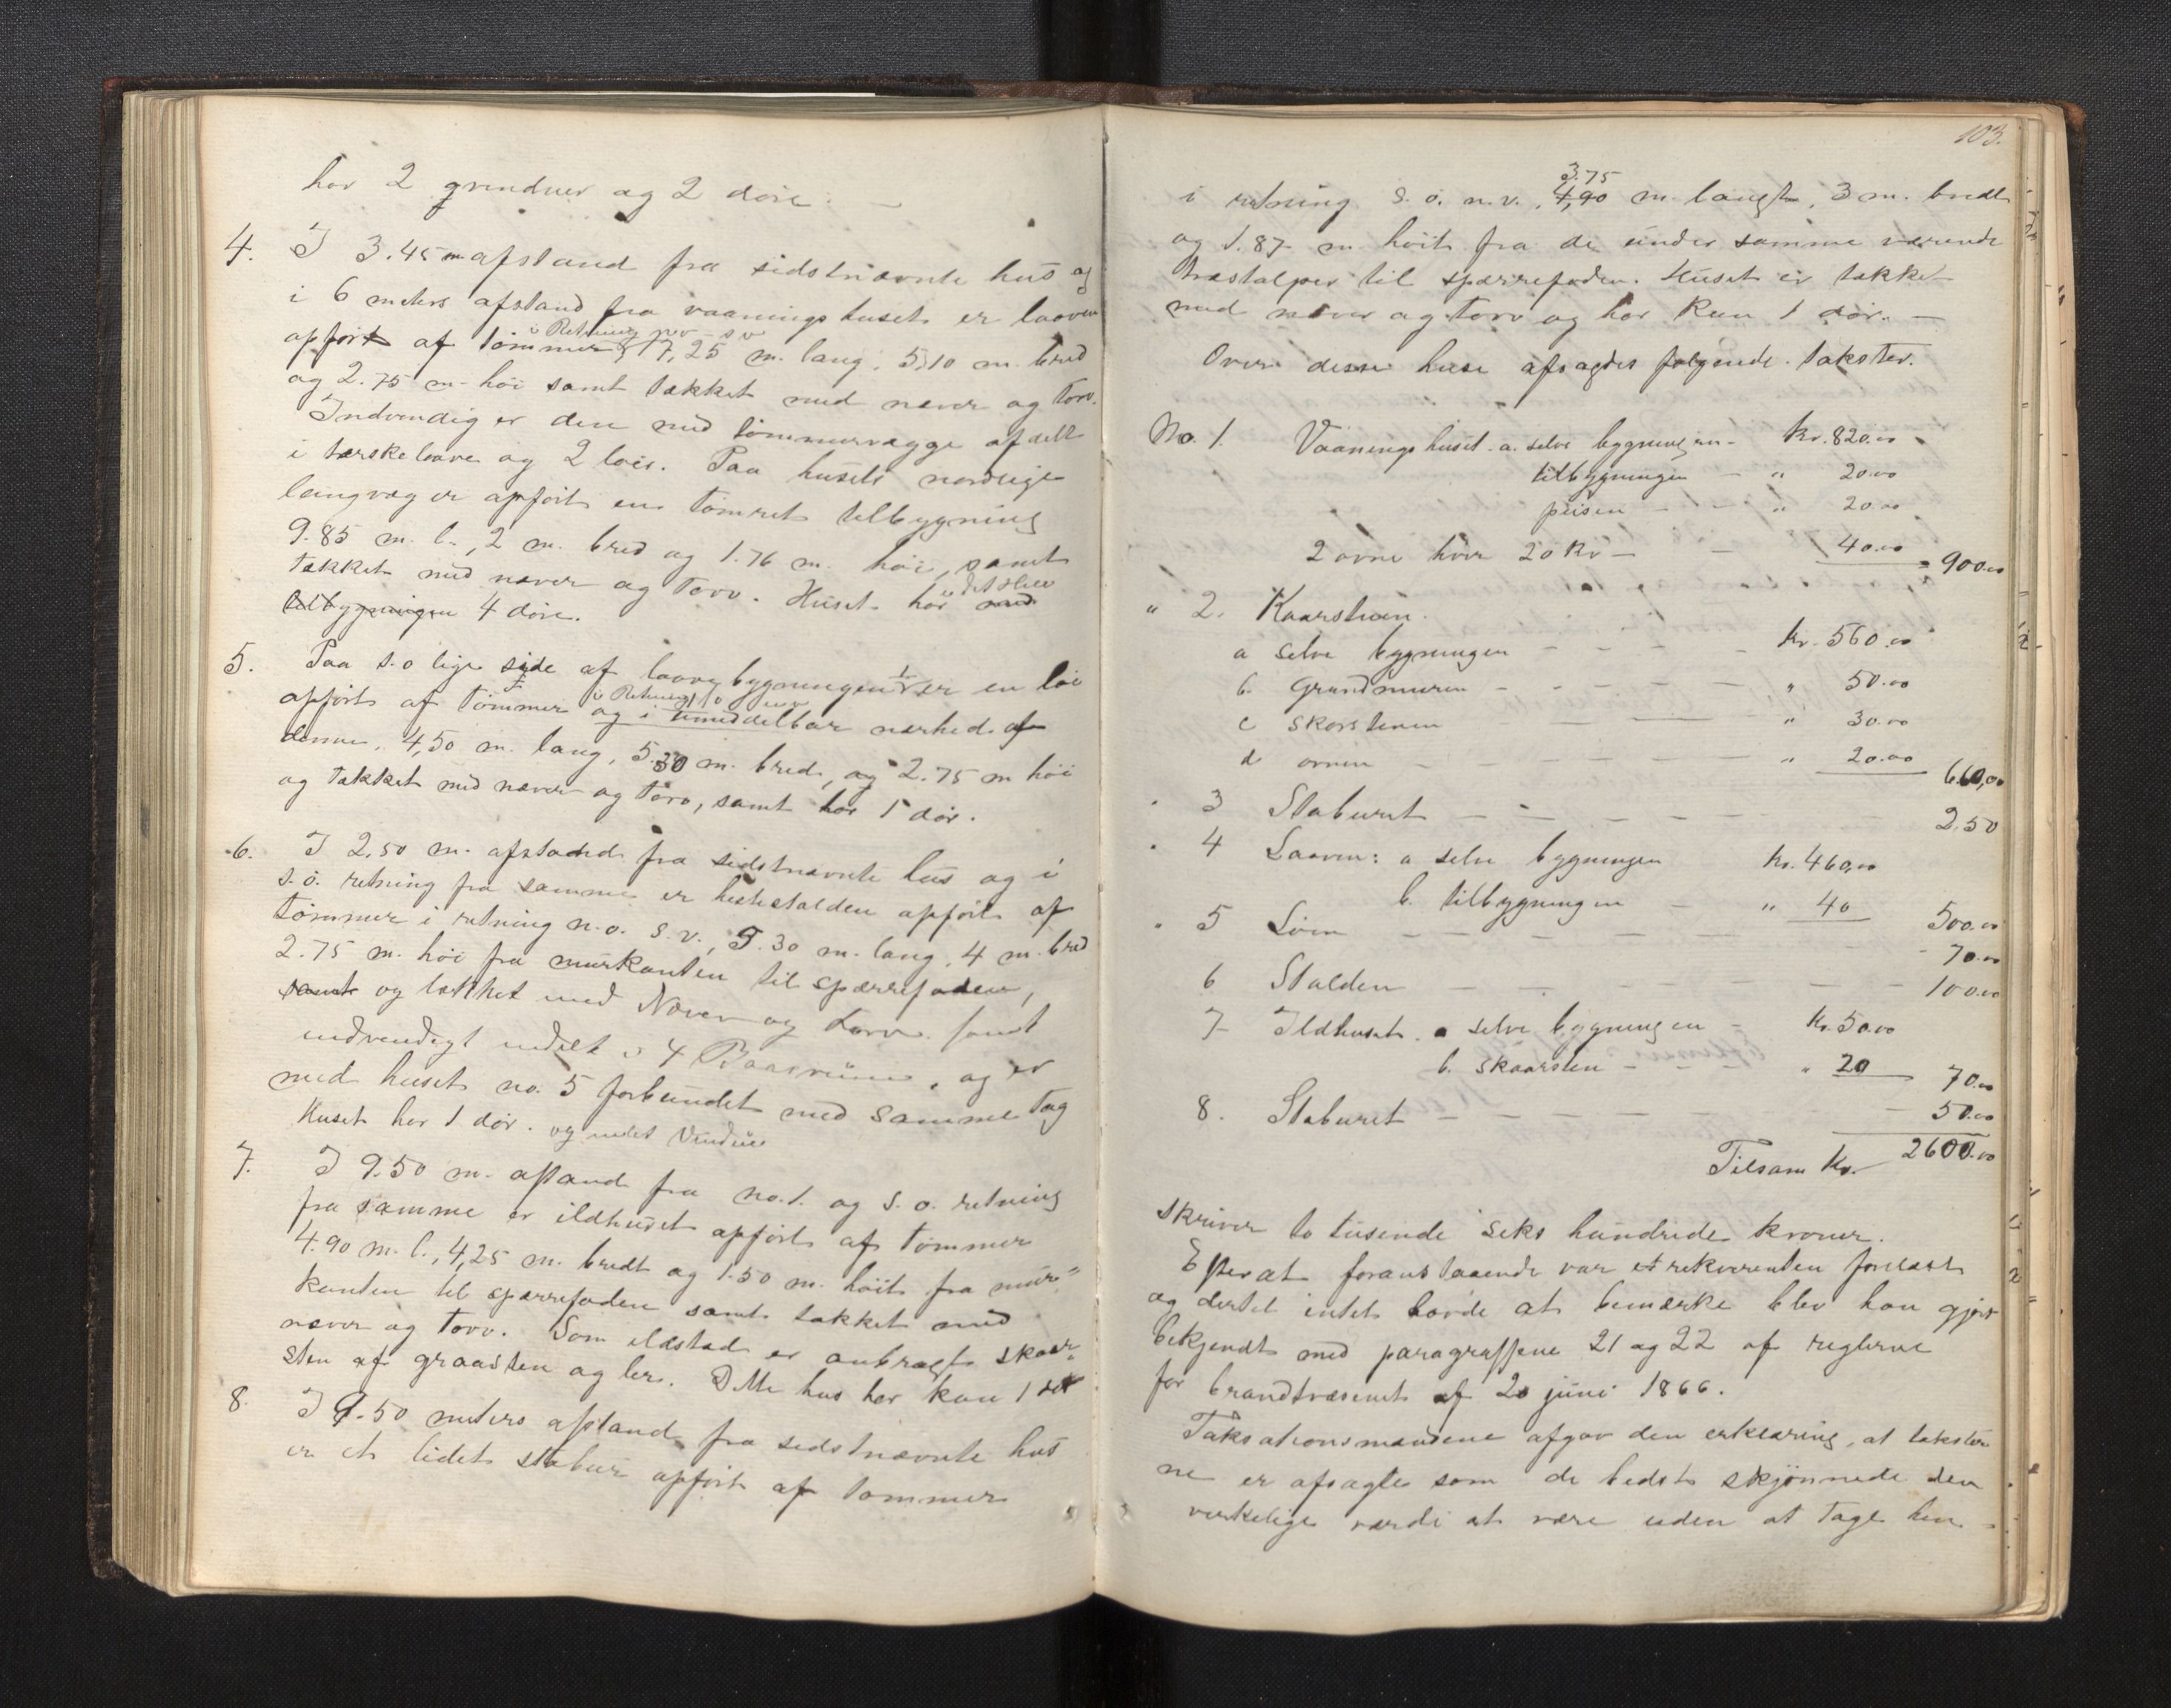 har 2 grinduer og 2 döre. —
4. I 3.45 m afstand fra sidstnævnte hus og
i 6 meters afstand fra vaaningshuset er laaven
i Retning nv - sv
opfört af tömmer, 17,25 m. lang, 5,10 m. bred
og 2.75 m. höi samt tækket med næver og torv.
Indvendig er den med tömmervægge afdelt
i tærskelaave og 2 löer. Paa husets nordlige
langvæg er opfört en tömret tilbygning
9.85 m. l., 2 m. bred og 1.76 m. höi, samt
tækket med næver og torv. Huset har i det Hele med
tilbygningen 4 döre.
5. Paa s.o lige side af laavebygningen er en löe
i Retning so nv
opfört af tömmer og i umiddelbar nærhed af
denne, 4,50 m. lang, 5.30 m. bred, og 2.75 m höi
og tækket med næver og torv, samt har 1 dör.
6. I 2,50 m. afstand fra sidstnævnte hus og i
s.ö. retning fra samme er hestestalden opfört af
tömmer i retning n.o. s.v., 9.30 m. lang, 4 m. bred
2.75 m. höi fra murkanten til spærrefoden,
samt og tækket med Næver og torv. samt
indvendigt inddelt i 4 Baasrum, og er
med huset no. 5 forbundet med samme tag
Huset har 1 dör. og intet Vindue
7. I 9.50 m. afstand fra no. 1. og s. o. retning
fra samme er ildhuset opfört af tömmer
4.90 m. l., 4,25 m. bredt og 1.50 m. höit fra mur-
kanten til spærrefoden samt tækket med
næver og torv. Som ildsted er anbragt skaar-
sten af graasten og ler. Dette hus har kun 1 dör
8. I 9.50 meters afstand fra sidstnævnte hus
er et lidet stabur opfört af tömmer
103.
3.75
i retning s. ö. n. v. 4,90 m. langt, 3 m. bredt
og 1.87 m. höit fra de under samme værende
træstolper til spærrefoden. Huset er tækket
med næver og torv og har kun 1 dör. —
Over disse huse afsagdes fölgende takster.
No. 1. Vaaningshuset. a. selve bygningen - Kr. 820.00
tilbygningen — " 20.00
peisen — " 20.00
2 ovne hver 20 Kr — 40.00 = 900.00
" 2. Kaarstuen.
a selve bygningen - - - - Kr. 560.00
b. Grundmuren - - - - " 50.00
c skorstenen — — " 30.00
d ovnen - - - - " 20.00 660,00
" 3 Staburet — — — — 2.50
" 4 Laaven: a selve bygningen Kr. 460,00
b. tilbygningen — " 40 500.00
" 5 Löen — — — — 70.00
6 Stalden — — — — 100.00
7 Ildhuset. a selve bygningen - Kr. 50.00
b. skaarsten - - - " 20 70.00
8. Staburet — — — — 50.00
Tilsam Kr. 2600.00
skriver to tusende seks hundrede kroner.
Efterat foranstaaende var rekvirenten forelæst
og dertil intet havde at bemærke blev han gjort
bekjendt med paragraffene 21 og 22 af reglerne
for brandtvæsenet af 20 juni 1866.
Taksationsmændene afgav den erklæring, at takster
ne er afsagte som de bedst skjönnede den
virkelige værdi at være uden at tage hen-